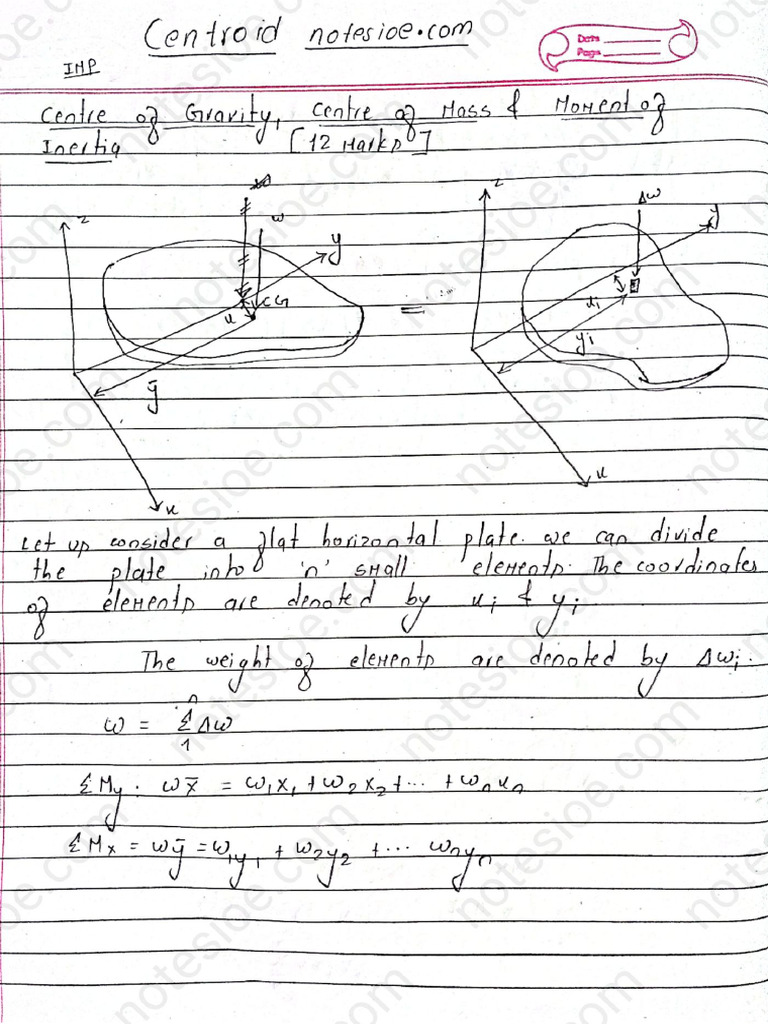 Centroid notesioe.com
IMP
Date
Page
Centre of Gravity, Centre of Mass & Moment of
Inertia [12 Marks]
z
w
y
CG
x
ȳ
x
=
z
Δw
y
xi
yi
x
Let us consider a flat horizontal plate. we can divide
the plate into 'n' small elements. The coordinates
of elements are denoted by xi & yi.
The weight of elements are denoted by Δwi.
w = Σ₁ⁿ Δw
ΣMy . wx̄ = w₁x₁ + w₂x₂ + ... + wₙxₙ
ΣMx = wȳ = w₁y₁ + w₂y₂ + ... wₙyₙ
notesioe.com